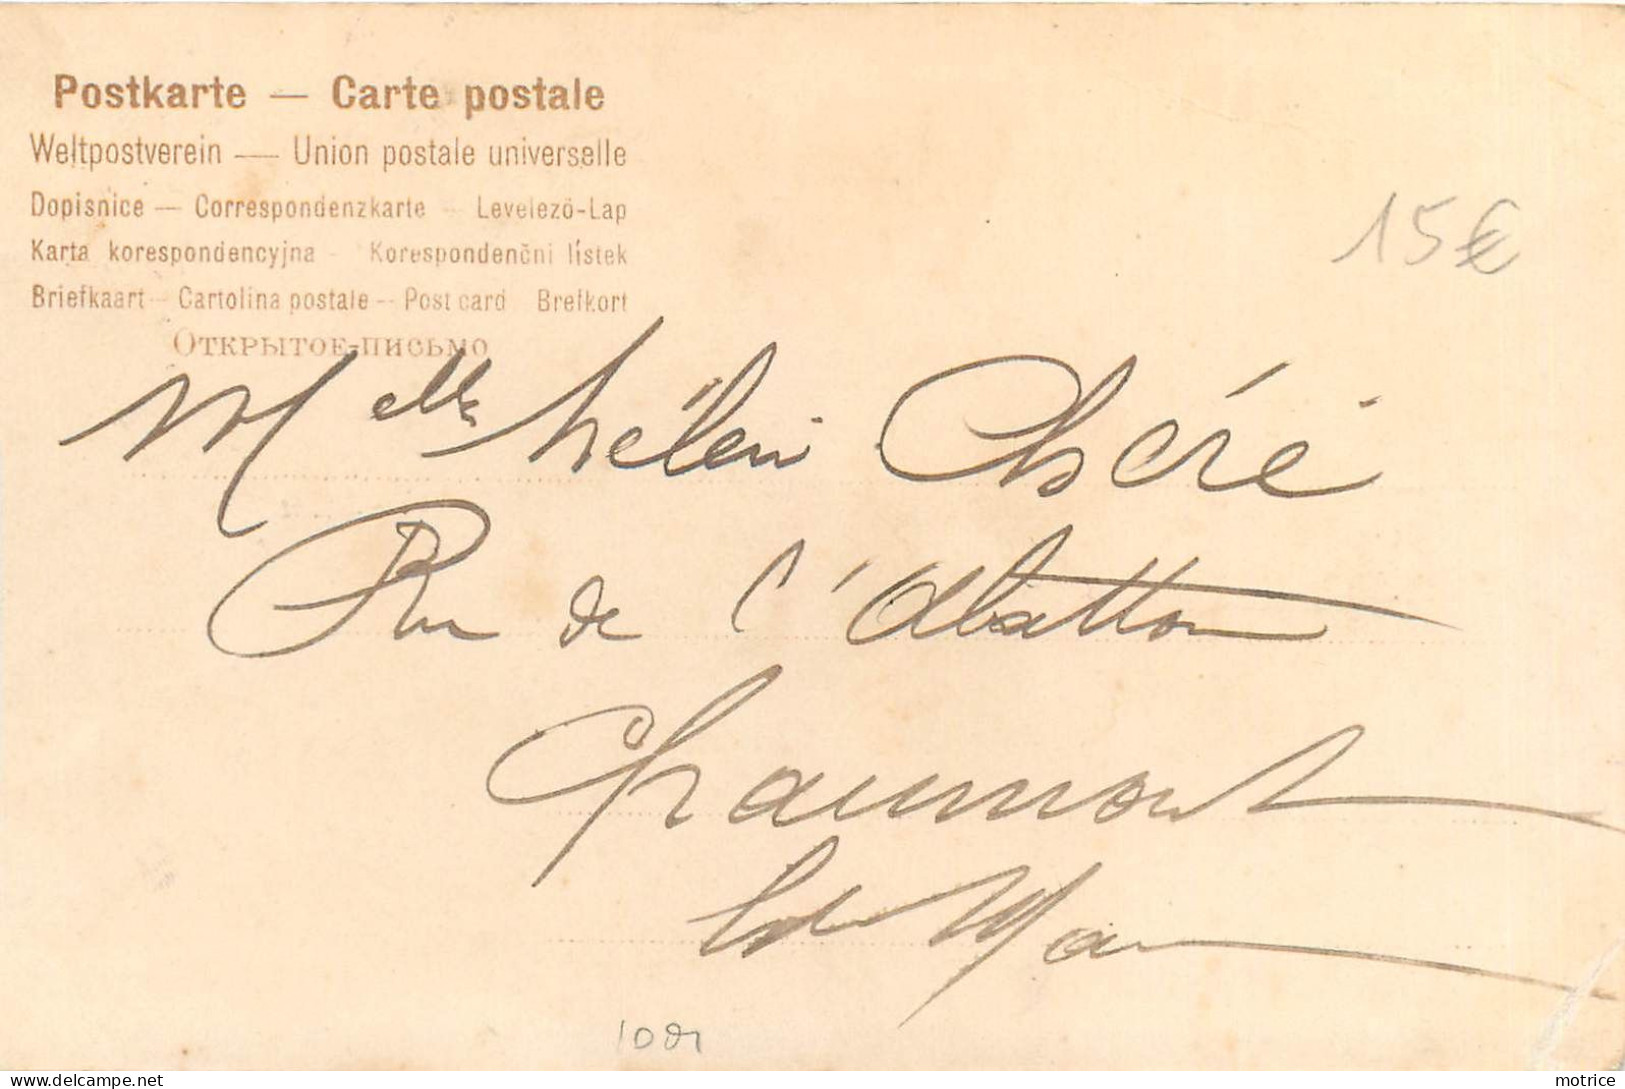 Postkarte — Carte postale
Weltpostverein — Union postale universelle
Dopisnice — Correspondenzkarte - Levelező-Lap
Karta korespondencyjna - Korespondenčni lístek
Briefkaart - Cartolina postale - Post card Brefkort
Открытое-письмо
15€
Melle Hélène Chéré
Rue de l'Abattoir
Chaumont
Hte Mar
motrice